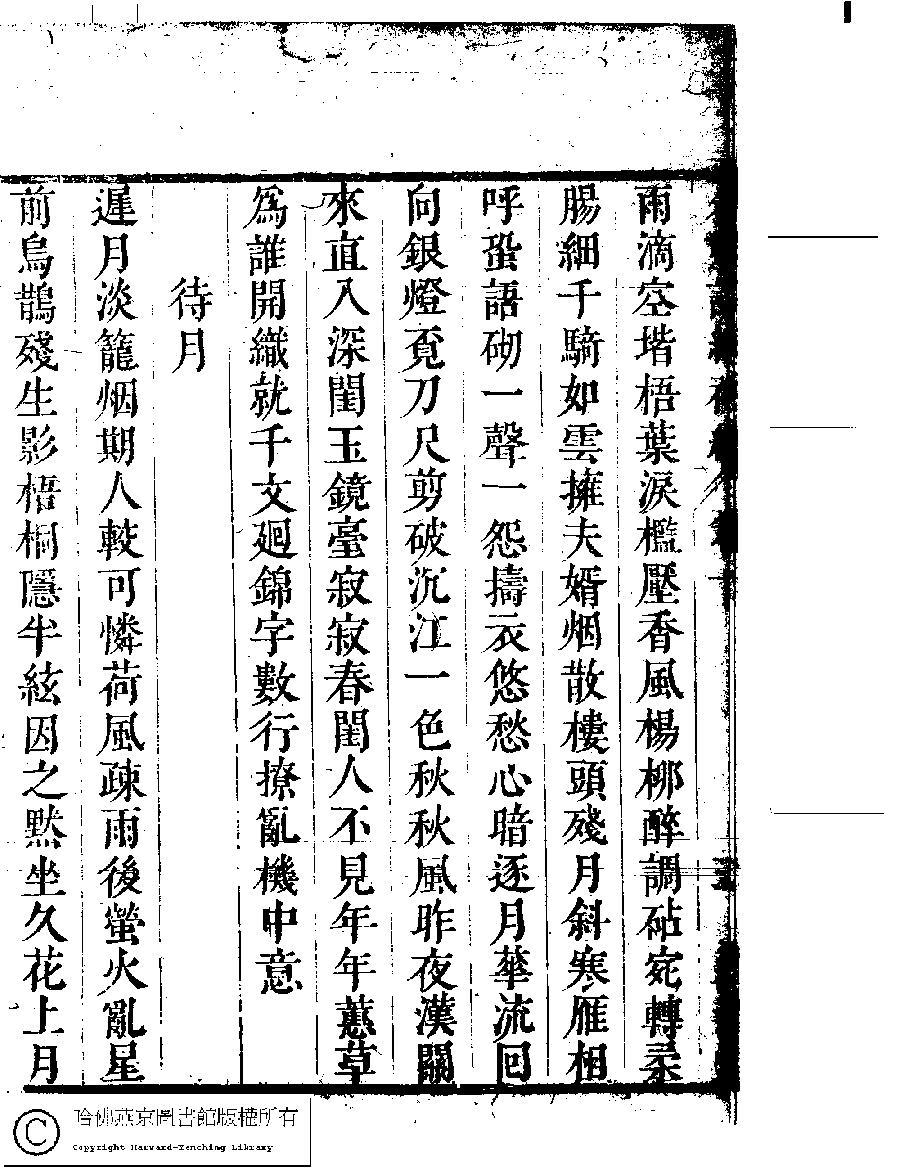 雨滴空堦梧葉淚檻壓香風楊桺醉調砧宛轉柔
腸細千騎如雲擁夫婿烟散樓頭殘月斜寒雁相
呼蛩語砌一聲一怨擣衣悠愁心暗逐月華流回
向銀燈覓刀尺剪破沉江一色秋秋風昨夜漢關
來直入深閨玉鏡臺寂寂春閨人不見年年蕙草
爲誰開織就千文廻錦字數行撩亂機中意
待月
遲月淡籠烟期人較可憐荷風疎雨後螢火亂星
前烏鵲殘生影梧桐隱半絃因之黙坐久花上月
哈佛燕京圖書館版權所有
Copyright Harvard-Yenching Library